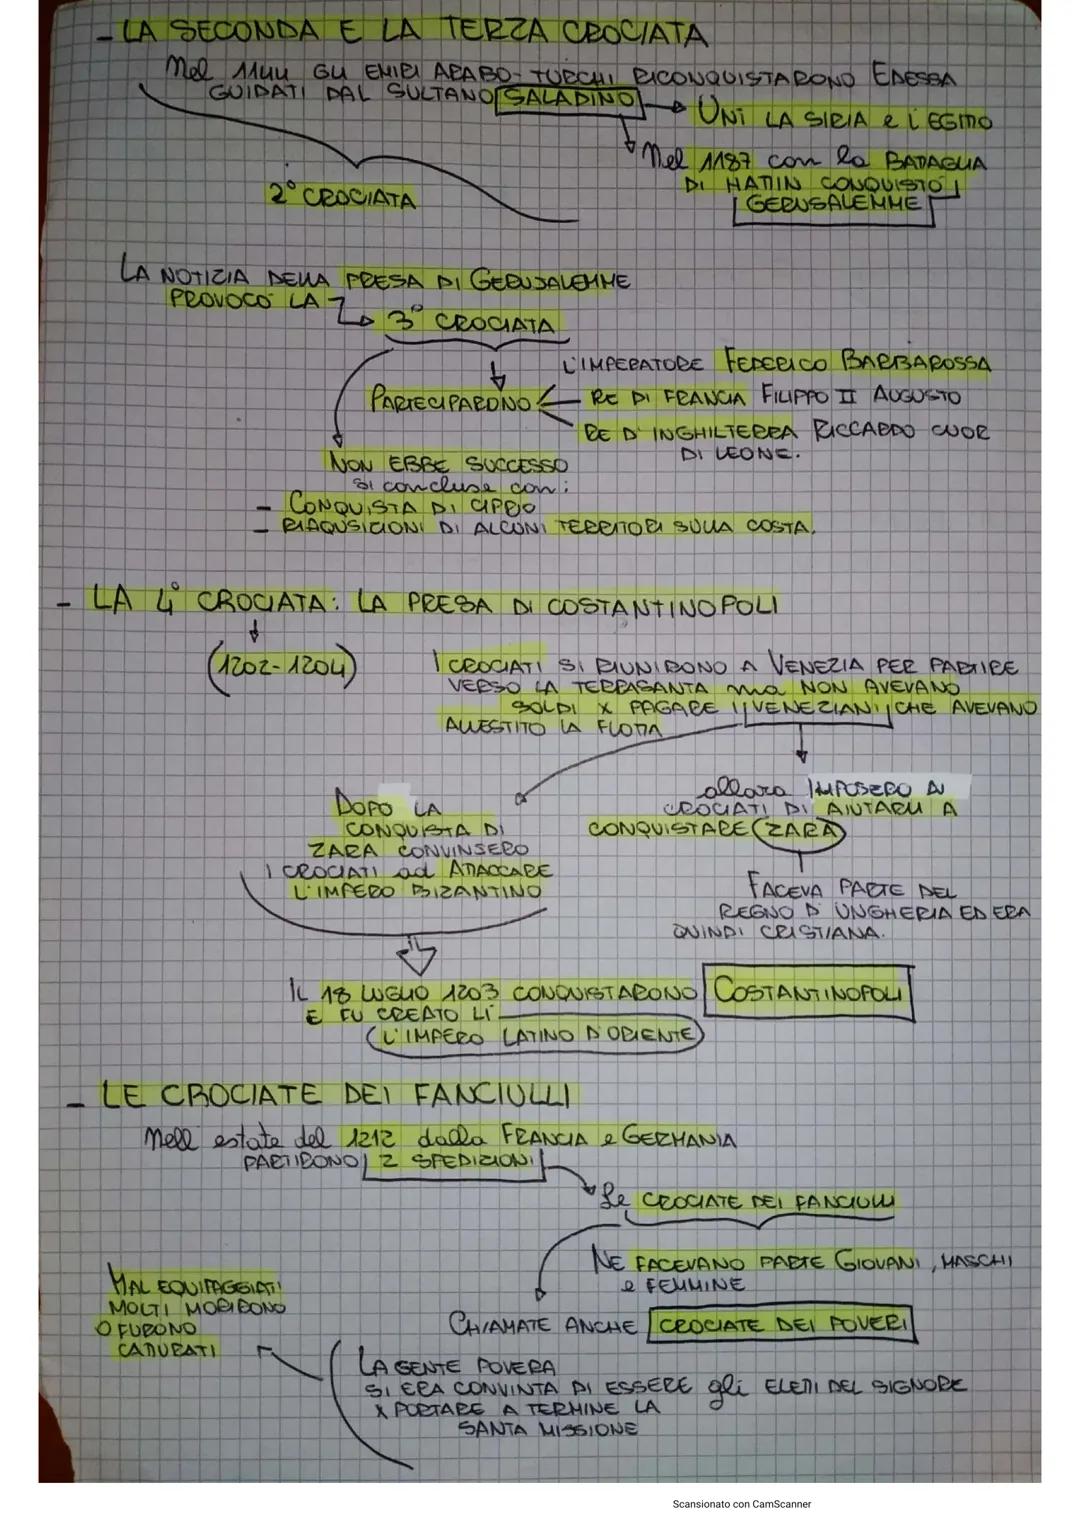 - LA SECONDA E LA TERZA CROCIATA
Nel 1144 GLI EMIRI ARABO-TURCHI RICONQUISTARONO EDESSA
GUIDATI DAL SULTANO SALADINO → UNÌ LA SIRIA e L'EGITTO
Nel 1187 con la BATTAGLIA
DI HATTIN CONQUISTÒ
GERUSALEMME
2° CROCIATA
LA NOTIZIA DELLA PRESA DI GERUSALEMME
PROVOCÒ LA
3° CROCIATA
L'IMPERATORE FEDERICO BARBAROSSA
PARTECIPARONO RE DI FRANCIA FILIPPO II AUGUSTO
RE D'INGHILTERRA RICCARDO CUOR
DI LEONE.
NON EBBE SUCCESSO
si concluse con:
- CONQUISTA DI CIPRO
- RIAQUSICIONI DI ALCUNI TERRITORI SULLA COSTA.
- LA 4° CROCIATA: LA PRESA DI COSTANTINOPOLI
(1202-1204)
I CROCIATI SI RIUNIRONO A VENEZIA PER PARTIRE
VERSO LA TERRASANTA ma NON AVEVANO
SOLDI X PAGARE I VENEZIANI CHE AVEVANO
ALLESTITO LA FLOTTA
allora IMPOSERO AI
CROCIATI DI AIUTARLI A
CONQUISTARE ZARA
FACEVA PARTE DEL
REGNO D'UNGHERIA ED ERA
QUINDI CRISTIANA.
DOPO LA
CONQUISTA DI
ZARA CONVINSERO
I CROCIATI ad ATTACCARE
L'IMPERO BIZANTINO
IL 18 LUGLIO 1203 CONQUISTARONO COSTANTINOPOLI
E FU CREATO LÌ
L'IMPERO LATINO D'ORIENTE
- LE CROCIATE DEI FANCIULLI
Nell'estate del 1212 dalla FRANCIA e GERMANIA
PARTIRONO 2 SPEDIZIONI
Le CROCIATE DEI FANCIULLI
NE FACEVANO PARTE GIOVANI, MASCHI
e FEMMINE
CHIAMATE ANCHE CROCIATE DEI POVERI
LA GENTE POVERA
SI ERA CONVINTA DI ESSERE gli ELETTI DEL SIGNORE
X PORTARE A TERMINE LA
SANTA MISSIONE
MAL EQUIPAGGIATI
MOLTI MORIRONO
O FURONO
CATTURATI
Scansionato con CamScanner